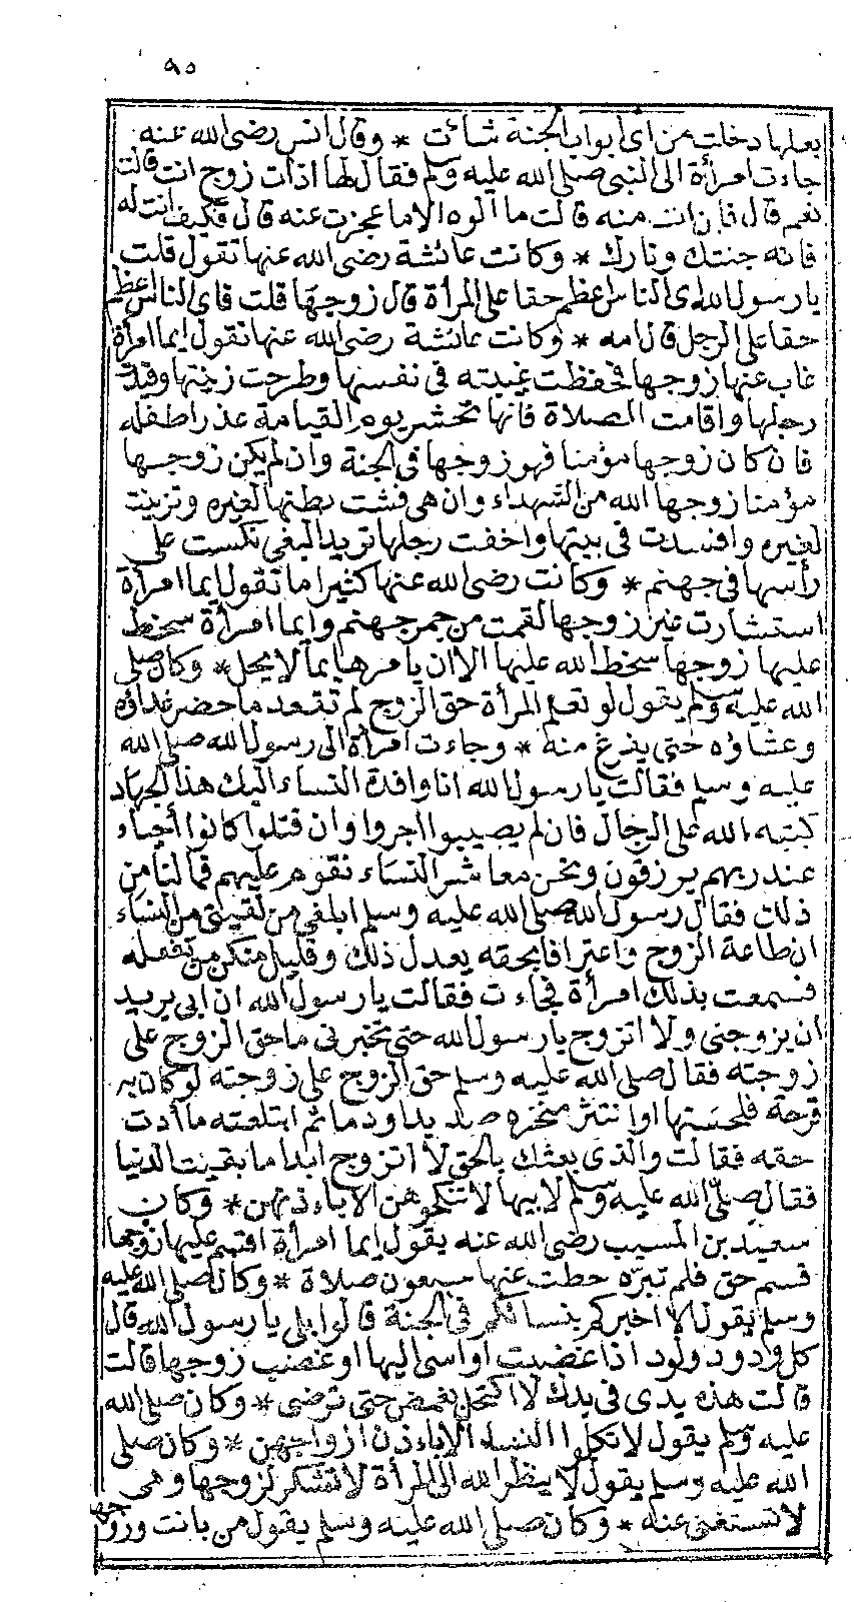 ٩٥
بعلها دخلت من اى ابواب الجنة شائت * وقال انس رضى الله عنه
جاءت امرأة الى النبى صلى الله عليه وسلم فقال لها اذات زوج انت قالت
نعم قال فاين انت منه قالت ما آلوه الا ما عجزت عنه قال فكيف انت له
فانه جنتك ونارك * وكانت عائشة رضى الله عنها تقول قلت
يا رسول الله اى الناس اعظم حقا على المرأة قال زوجها قلت فاى الناس اعظم
حقا على الرجل قال امه * وكانت عائشة رضى الله عنها تقول ايما امرأة
غاب عنها زوجها فحفظت غيبته فى نفسها وطرحت زينتها وقيدت
رجلها واقامت الصلاة فانها تحشر يوم القيامة عذراء طفله
فان كان زوجها مؤمنا فهو زوجها فى الجنة وان لم يكن زوجها
مؤمنا زوجها الله من الشهداء وان هى فشت بطنها لغيره وتزينت
لغيره وافسدت فى بيتها واخفت رجلها تريد البغى نكست على
رأسها فى جهنم * وكانت رضى الله عنها كثيرا ما تقول ايما امرأة
استشارت غير زوجها لقمت من جمر جهنم وايما امرأة سخط
عليها زوجها سخط الله عليها الا ان يامرها بما لا يحل * وكان صلى
الله عليه وسلم يقول لو تعلم المرأة حق الزوج لم تقعد ما حضر غداؤه
وعشاؤه حتى يفرغ منه * وجاءت امرأة الى رسول الله صلى الله
عليه وسلم فقالت يا رسول الله انا وافدة النساء اليك هذا الجهاد
كتبه الله على الرجال فان لم يصيبوا اجروا وان قتلوا كانوا أحياء
عند ربهم يرزقون ونحن معاشر النساء نقوم عليهم فما لنا من
ذلك فقال رسول الله صلى الله عليه وسلم ابلغى من لقيتى من النساء
ان طاعة الزوج واعترافا بحقه يعدل ذلك وقليل منكن من تفعله
فسمعت بذلك امرأة فجاءت فقالت يا رسول الله ان ابى يريد
ان يزوجنى ولا اتزوج يا رسول الله حتى تخبرنى ما حق الزوج على
زوجته فقال صلى الله عليه وسلم حق الزوج على زوجته لو كان به
قرحة فلحستها او انتثر منخره صديدا ودما ثم ابتلعته ما أدت
حقه فقالت والذى بعثك بالحق لا اتزوج ابدا ما بقيت الدنيا
فقال صلى الله عليه وسلم لابيها لا تنكحوهن الا باءذنهن * وكان
سعيد بن المسيب رضى الله عنه يقول ايما امرأة اقسم عليها زوجها
قسم حق فلم تبره حطت عنها سبعون صلاة * وكان صلى الله عليه
وسلم يقول الا اخبركم بنسائكم فى الجنة قالوا بلى يا رسول الله قال
كل ودود ولود اذا غضبت او اسى اليها او غضب زوجها قالت
قالت هذه يدى فى يدك لا اكتحل بغمض حتى ترضى * وكان صلى الله
عليه وسلم يقول لا تكلوا النساء الا باءذن ازواجهن * وكان صلى
الله عليه وسلم يقول لا ينظر الله الى المرأة لا تشكر لزوجها وهى
لا تستغنى عنه * وكان صلى الله عليه وسلم يقول من باتت وزوجها